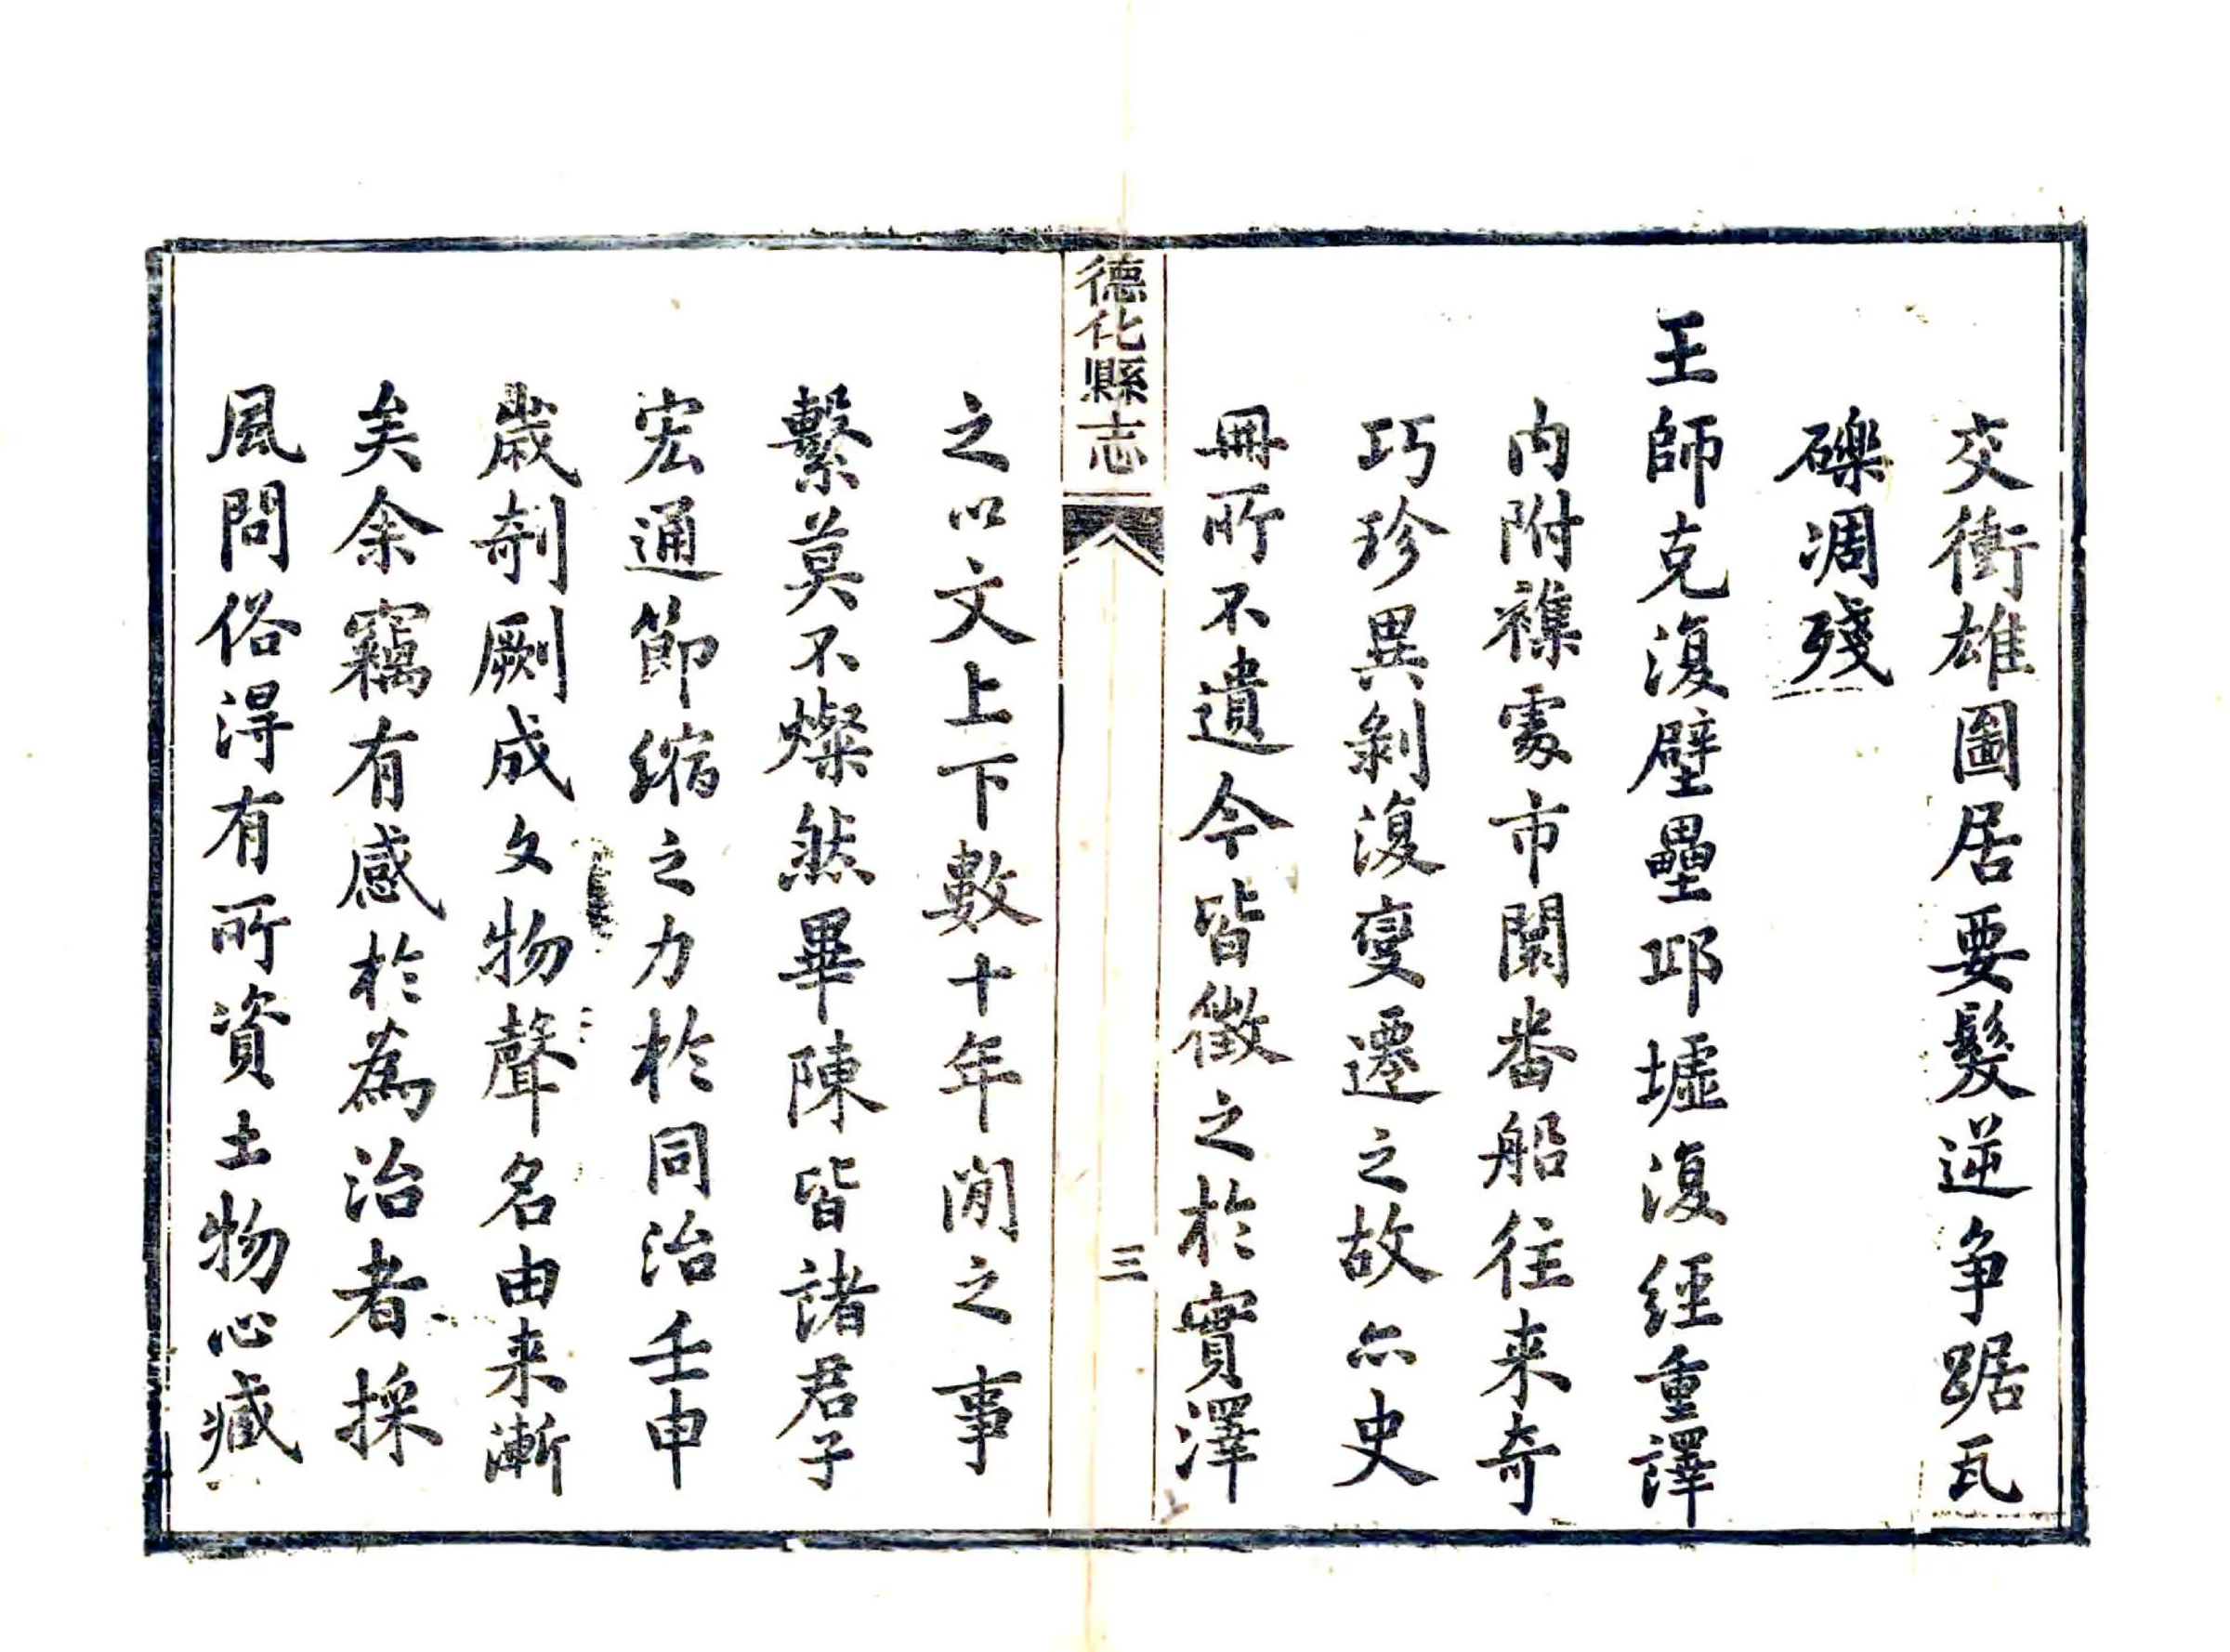 交衝雄圖居要髮逆争踞瓦
礫凋殘
王師克復壁壘邱墟復經重譯
内附襍處市闤番船往来奇
巧珍異剝復變遷之故亦史
冊所不遺今皆徵之於實澤
德化縣志
三
之以文上下數十年閒之事
繫莫不燦然畢陳皆諸君子
宏通節縮之力於同治壬申
歲剞劂成文物聲名由来漸
矣余竊有感於為治者採
風問俗得有所資土物心臧